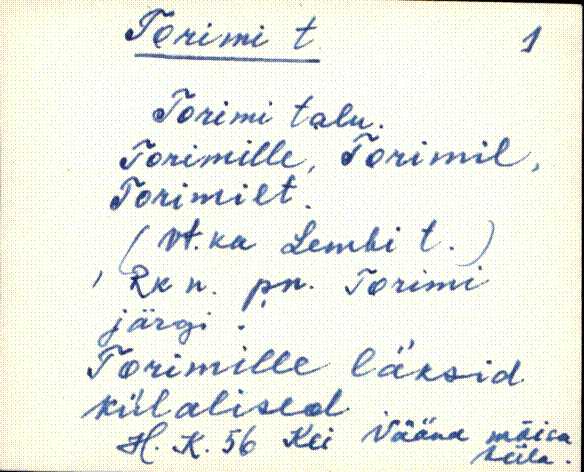 Torimi t 1
Torimi talu.
Torimille, Torimil,
Torimilt.
(Vt. ka Lembi t.)
, Rk n. pn. Torimi
järgi.
Torimille läksid
külalised
H. K. 56 Kei Vääna mõisa
küla.